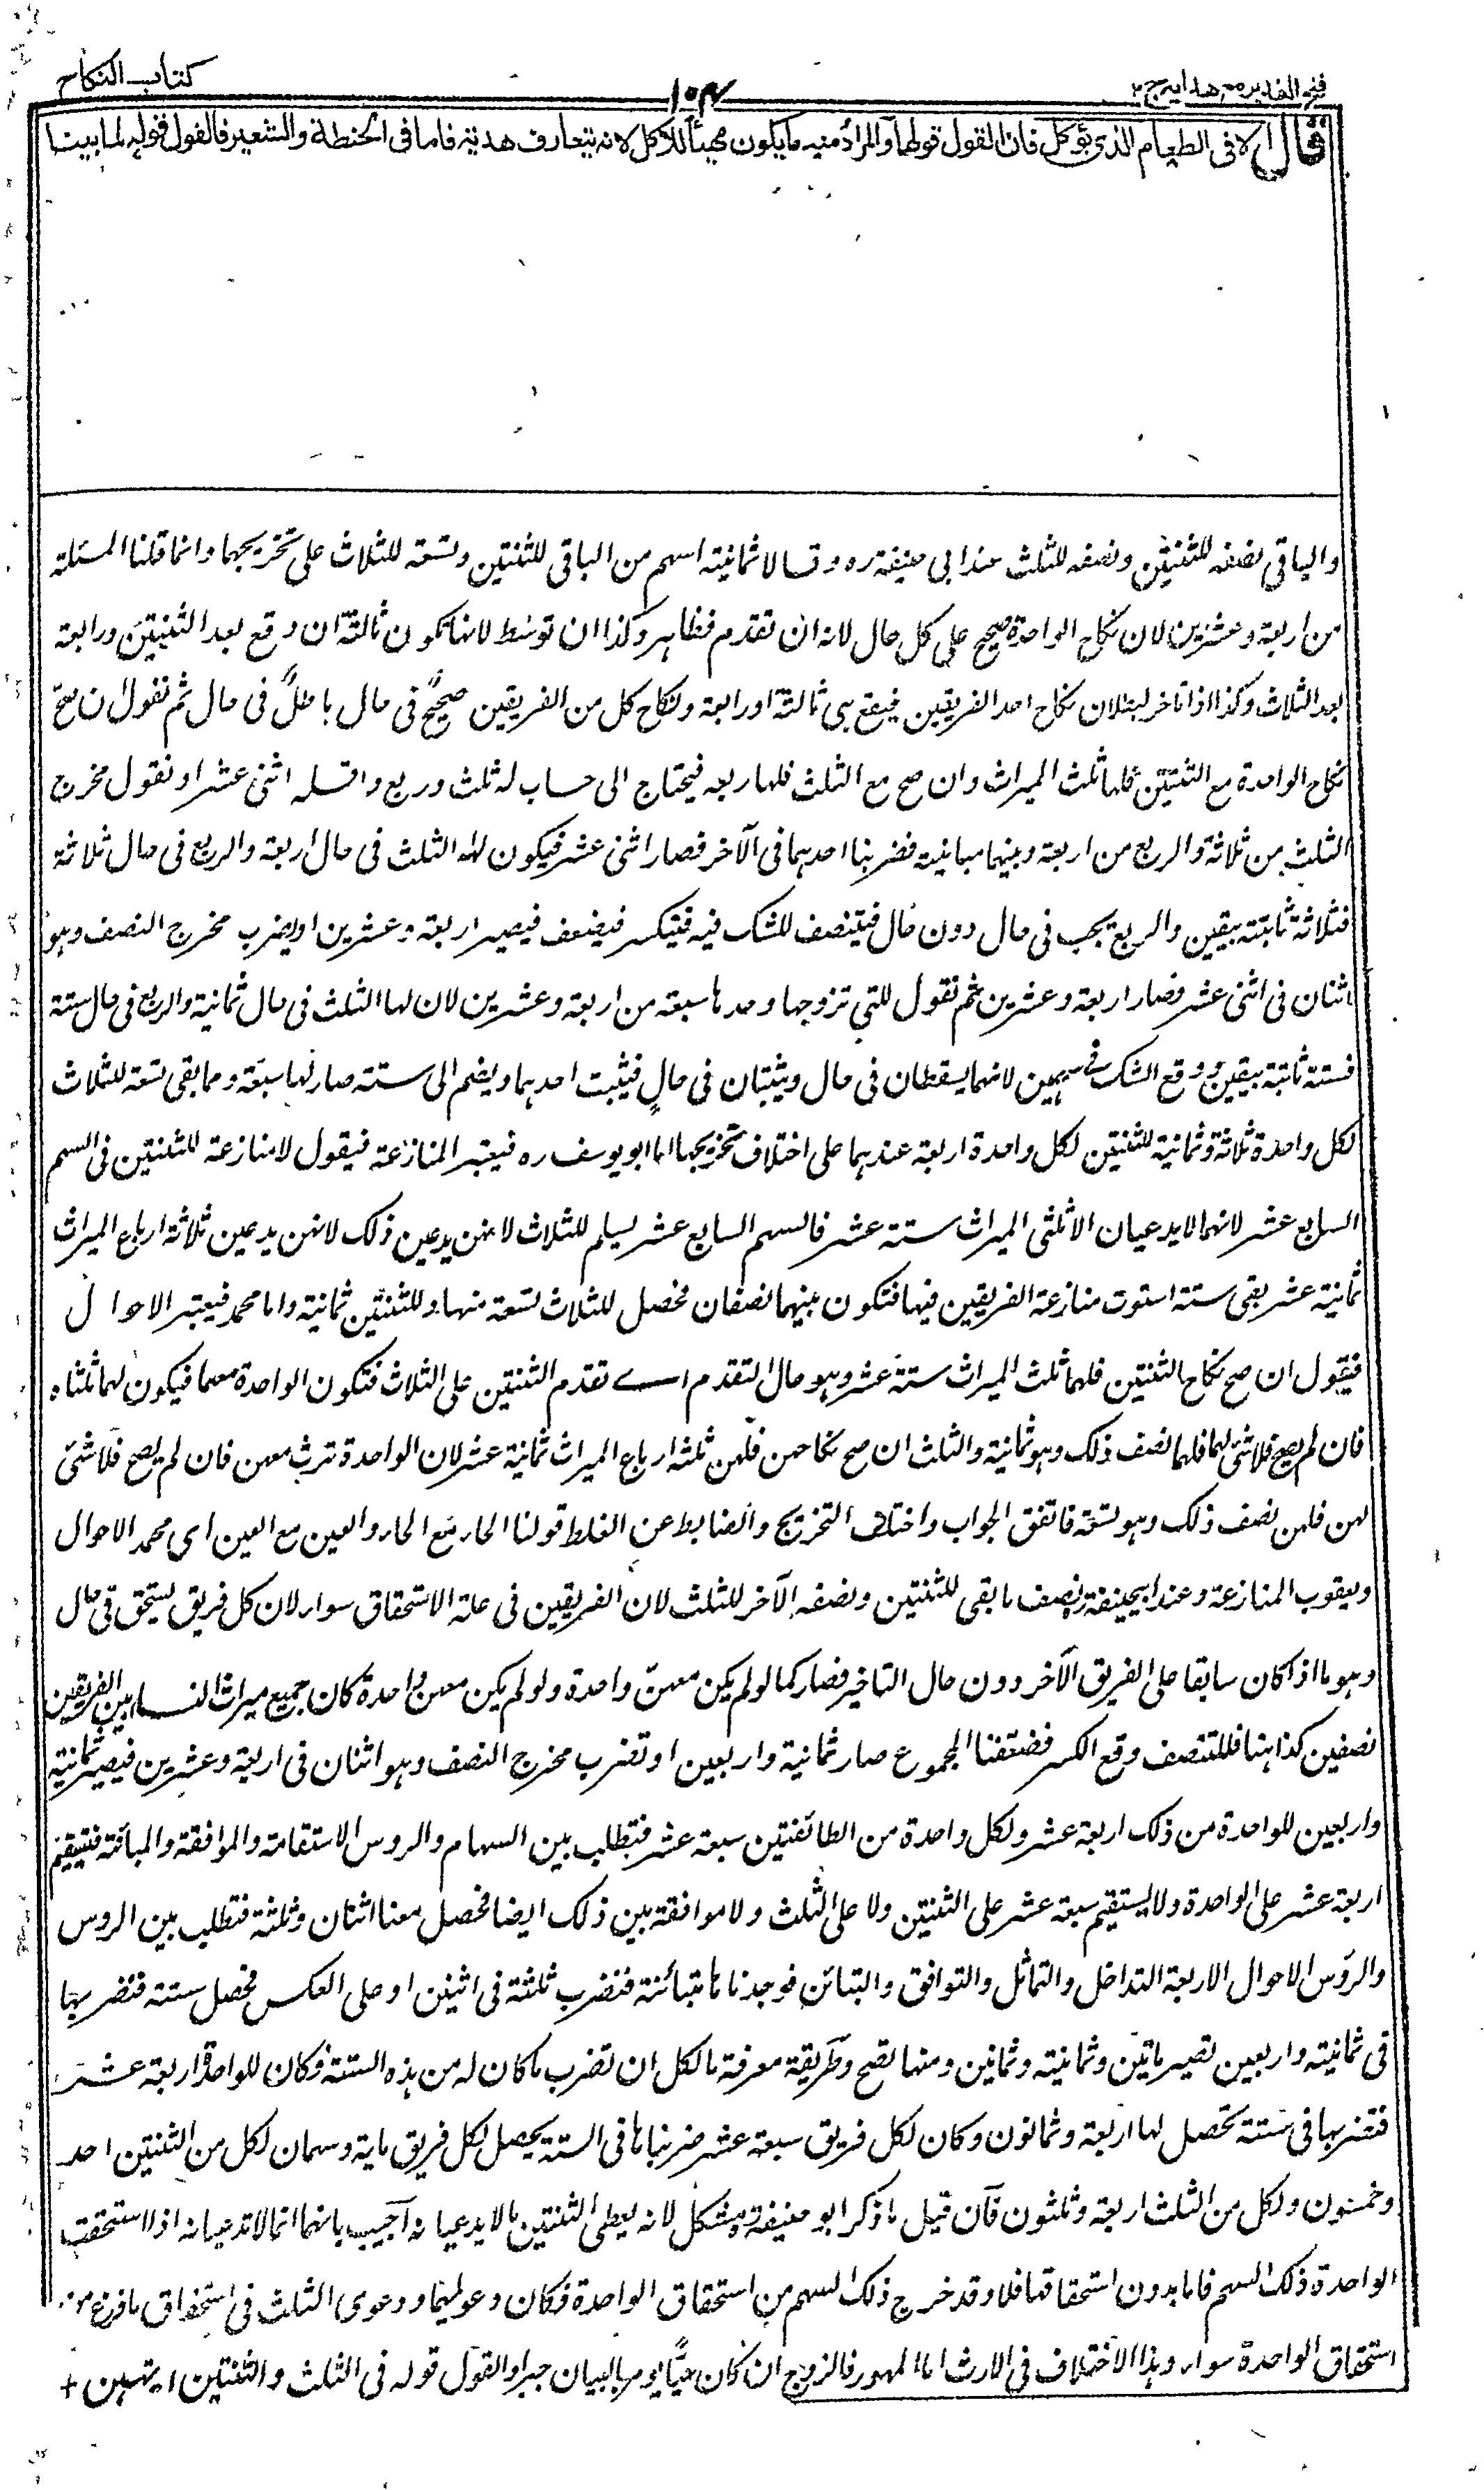 فتح القدير مع هدايه ج ٢
١٠٤
كتاب النكاح
قال الا فى الطعام الذى يؤكل فان القول قولها والمراد منه ما يكون مهيأ للاكل لانه يتعارف هدية فاما فى الحنطة والشعير فالقول قوله لما بينا
والباقى نصفه للثنتين ونصفه للثلث عند ابى حنيفة ره وقالا ثمانية اسهم من الباقى للثنتين وتسعة للثلاث على تخريجهما وانما قلنا المسئلة
من اربعة وعشرين لان نكاح الواحدة صحيح على كل حال لانه ان تقدم فظاهر وكذا ان توسط لانها تكون ثالثة ان وقع بعد الثنتين ورابعة
بعد الثلاث وكذا اذا تاخر لبطلان نكاح احد الفريقين فيقع هى ثالثة او رابعة ونكاح كل من الفريقين صحيح فى حال باطل فى حال ثم نقول ان صح
نكاح الواحدة مع الثنتين فلها ثلث الميراث وان صح مع الثلث فلها ربعه فيحتاج الى حساب له ثلث وربع واقله اثنى عشر او نقول مخرج
الثلث من ثلاثة والربع من اربعة وبينهما مباينة فضربنا احدهما فى الآخر فصار اثنى عشر فيكون لها الثلث فى حال اربعة والربع فى حال ثلاثة
فثلاثة ثابتة بيقين والربع يجب فى حال دون حال فيتنصف للشك فيه فتنكسر فيضعف فيصير اربعة وعشرين او يضرب مخرج النصف وهو
اثنان فى اثنى عشر فصار اربعة وعشرين ثم نقول للتى تزوجها وحدها سبعة من اربعة وعشرين لان لها الثلث فى حال ثمانية والربع فى حال ستة
فستة ثابتة بيقين ووقع الشك فى سهمين لانهما يسقطان فى حال ويثبتان فى حال فيثبت احدهما ويضم الى ستة صار لها سبعة ومما بقى تسعة للثلاث
لكل واحدة ثلاثة وثمانية للثنتين لكل واحدة اربعة عندهما على اختلاف تخريجهما اما ابو يوسف ره فيعتبر المنازعة فيقول لا منازعة للثنتين فى السهم
السابع عشر لانهما لا يدعيان الا ثلثى الميراث ستة عشر فالسهم السابع عشر يسلم للثلاث لانهن يدعين ذلك لانهن يدعين ثلاثة ارباع الميراث
ثمانية عشر بقى ستة استوت منازعة الفريقين فيها فتكون بينهما نصفان فحصل للثلاث تسعة منها وللثنتين ثمانية واما محمد فيعتبر الاحوال
فيقول ان صح نكاح الثنتين فلهما ثلث الميراث ستة عشر وهو حال التقدم اى تقدم الثنتين على الثلاث فتكون الواحدة معهما فيكون لهما ثلثاه
فان لم يصح فلا شئ لهما فلهما نصف ذلك وهو ثمانية والثلث ان صح نكاحهن فلهن ثلثة ارباع الميراث ثمانية عشر لان الواحدة ترث معهن فان لم يصح فلا شئ
لهن فلهن نصف ذلك وهو تسعة فاتفق الجواب واختلف التخريج والضابط عن الغلط قولنا الحاء مع الحاء والعين مع العين اى محمد الاحوال
ويعقوب المنازعة وعند ابيحنيفة نصف ما بقى للثنتين ونصفه الآخر للثلث لان الفريقين فى علة الاستحقاق سواء لان كل فريق يستحق فى حال
وهو ما اذا كان سابقا على الفريق الآخر دون حال التاخير فصار كما لو لم يكن معهن واحدة ولو لم يكن معهن واحدة كان جميع ميراث النساء بين الفريقين
نصفين كذا هنا فللتنصف وقع الكسر فضعفنا المجموع صار ثمانية واربعين او تضرب مخرج النصف وهو اثنان فى اربعة وعشرين فيصير ثمانية
واربعين للواحدة من ذلك اربعة عشر ولكل واحدة من الطائفتين سبعة عشر فتطلب بين السهام والروس الاستقامة والموافقة والمباينة فتستقيم
اربعة عشر على الواحدة ولا يستقيم سبعة عشر على الثنتين ولا على الثلث ولا موافقة بين ذلك ايضا فحصل معنا اثنان وثلثة فتطلب بين الروس
والروس الاحوال الاربعة التداخل والتماثل والتوافق والتباين فوجدناها متبائنة فنضرب ثلثة فى اثنين او على العكس فحصل ستة فنضربها
فى ثمانية واربعين تصير مأتين وثمانية وثمانين ومنها تصح وطريقة معرفة ما لكل ان تضرب ما كان له من هذه الستة فكان للواحدة اربعة عشر
فنضربها فى ستة تحصل لها اربعة وثمانون وكان لكل فريق سبعة عشر ضربناها فى الستة يحصل لكل فريق ماية وسهمان لكل من الثنتين احد
وخمسون ولكل من الثلث اربعة وثلثون فان قيل ما ذكر ابو حنيفة مشكل لانه يعطى الثنتين ما لا يدعيانه اجيب بانهما انما لا تدعيانه اذا استحقت
الواحدة ذلك السهم فاما بدون استحقاقها فلا وقد خرج ذلك السهم من استحقاق الواحدة فكان دعواهما ودعوى الثلث فى استحقاق ما فرغ من
استحقاق الواحدة سواء وهذا الاختلاف فى الارث اما المهور فالزوج ان كان حيا يومر بالبيان جبرا والقول قوله فى الثلث والثنتين ايتهن +